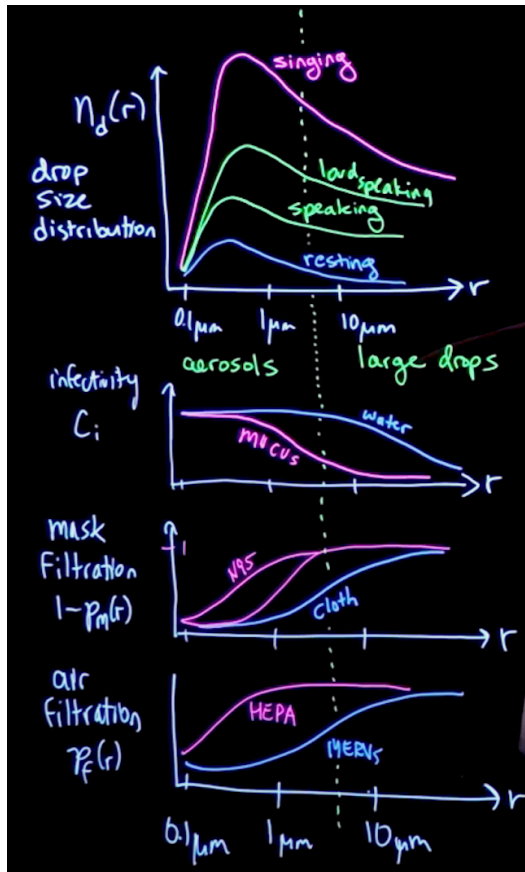 singing
n_d(r)
drop
size
distribution
loud speaking
speaking
resting
r
0.1μm 1μm 10μm
aerosols large drops
infectivity
C_i
water
mucus
r
mask
filtration
1-p_m(r)
1
N95
cloth
r
air
filtration
p_f(r)
HEPA
MERVs
r
0.1μm 1μm 10μm